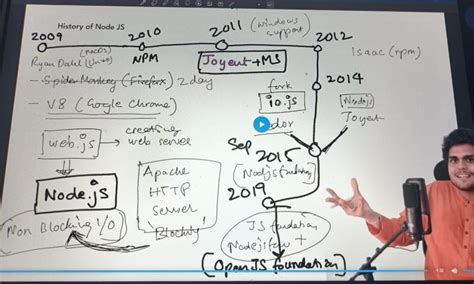 History of Node JS
2009
2010
2011 (windows support)
2012
(MacOS)
Ryan Dahl (Linux)
NPM
Joyent + MS
Isaac (npm)
- Spider Monkey (Firefox) 2 day
- V8 (Google Chrome)
fork
io.js
2014
Nodejs
Joyent
web.js → creating web server
Node.js
Non Blocking I/O
Apache
HTTP
Server
Blocking
Sep 2015
2019
JS foundation
+
(OpenJS foundation)